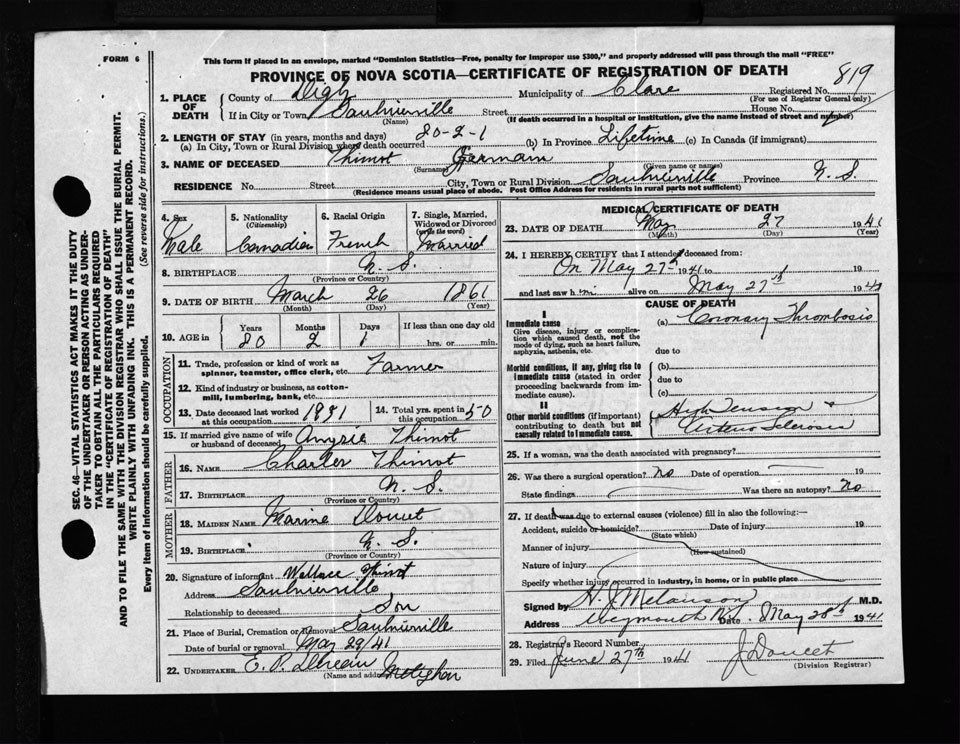 FORM 6
This form if placed in an envelope, marked "Dominion Statistics—Free, penalty for improper use $300," and properly addressed will pass through the mail "FREE"
PROVINCE OF NOVA SCOTIA—CERTIFICATE OF REGISTRATION OF DEATH
819
1. PLACE OF DEATH
County of Digby Municipality of Clare Registered No.
(For use of Registrar General only)
If in City or Town Saulnierville Street House No.
(Name) (If death occurred in a hospital or institution, give the name instead of street and number)
2. LENGTH OF STAY (in years, months and days)
(a) In City, Town or Rural Division where death occurred 80-2-1 (b) In Province Lifetime (c) In Canada (if immigrant)
3. NAME OF DECEASED Thimot Germain
(Surname) (Given name or names)
RESIDENCE No. Street City, Town or Rural Division Saulnierville Province N. S.
(Residence means usual place of abode. Post Office Address for residents in rural parts not sufficient)
4. Sex Male
5. Nationality (Citizenship) Canadian
6. Racial Origin French
7. Single, Married, Widowed or Divorced (write the word) Married
8. BIRTHPLACE N. S.
(Province or Country)
9. DATE OF BIRTH March 26 1861
(Month) (Day) (Year)
10. AGE in Years Months Days If less than one day old
80 2 1 hrs. or min.
OCCUPATION
11. Trade, profession or kind of work as spinner, teamster, office clerk, etc. Farmer
12. Kind of industry or business, as cotton-mill, lumbering, bank, etc.
13. Date deceased last worked at this occupation 1931 14. Total yrs. spent in this occupation 50
15. If married give name of wife or husband of deceased Thimot
FATHER
16. NAME Charles Thimot
17. BIRTHPLACE N. S.
(Province or Country)
MOTHER
18. MAIDEN NAME Doucet
19. BIRTHPLACE N. S.
(Province or Country)
20. Signature of informant Wallace Thimot
Address Saulnierville
Relationship to deceased Son
21. Place of Burial, Cremation or Removal Saulnierville
Date of burial or removal May 29/41
22. UNDERTAKER E. P.
(Name and address)
MEDICAL CERTIFICATE OF DEATH
23. DATE OF DEATH May 27 1941
(Month) (Day) (Year)
24. I HEREBY CERTIFY that I attended deceased from:
On May 27th 1941 to 19
and last saw him alive on May 27th 194
CAUSE OF DEATH
I
Immediate cause
Give disease, injury or complication which caused death, not the mode of dying, such as heart failure, asphyxia, asthenia, etc.
(a) Coronary Thrombosis
due to
Morbid conditions, if any, giving rise to immediate cause (stated in order proceeding backwards from immediate cause).
(b)
due to
(c)
II
Other morbid conditions (if important) contributing to death but not causally related to immediate cause.
High Tension &
Arterio Sclerosis
25. If a woman, was the death associated with pregnancy?
26. Was there a surgical operation? No Date of operation 19
State findings Was there an autopsy? No
27. If death was due to external causes (violence) fill in also the following:—
Accident, suicide or homicide? Date of injury 19
(State which)
Manner of injury
(How sustained)
Nature of injury
Specify whether injury occurred in industry, in home, or in public place
Signed by H. J. Melanson M.D.
Address Weymouth N.S. Date May 28th 1941
28. Registrar's Record Number
29. Filed June 27th 1941 J Doucet
(Division Registrar)
SEC. 46—VITAL STATISTICS ACT MAKES IT THE DUTY OF THE UNDERTAKER OR PERSON ACTING AS UNDERTAKER TO OBTAIN ALL THE PARTICULARS REQUIRED IN THE "CERTIFICATE OF REGISTRATION OF DEATH"
AND TO FILE THE SAME WITH THE DIVISION REGISTRAR WHO SHALL ISSUE THE BURIAL PERMIT.
WRITE PLAINLY WITH UNFADING INK. THIS IS A PERMANENT RECORD.
Every item of information should be carefully supplied. (See reverse side for instructions.)